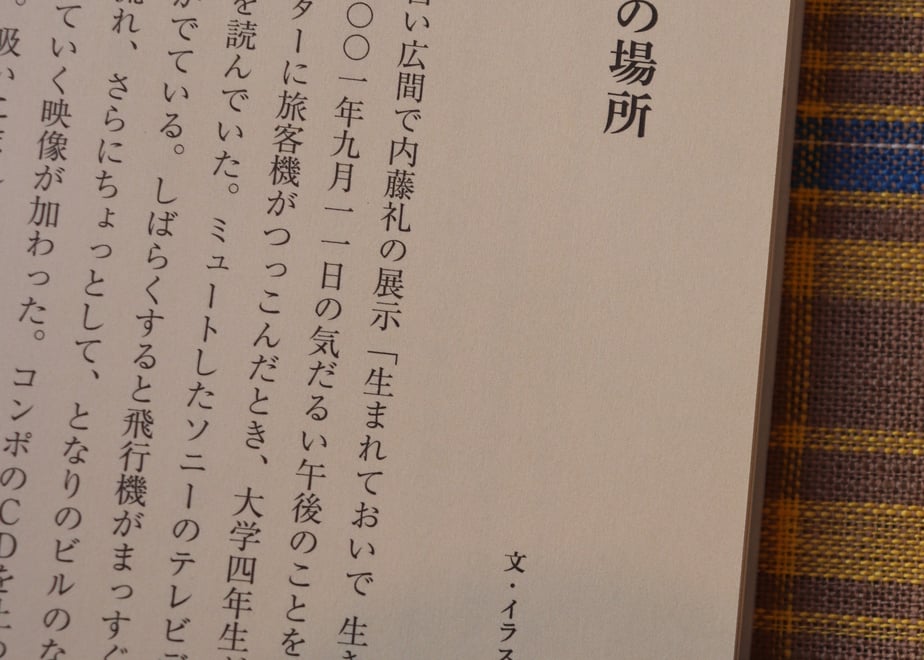 の場所
文・イラス
い広間で内藤礼の展示「生まれておいで 生き
〇〇一年九月一一日の気だるい午後のことを
ターに旅客機がつっこんだとき、大学四年生
を読んでいた。ミュートしたソニーのテレビ
がでている。しばらくすると飛行機がまっすぐ
流れ、さらにちょっとして、となりのビルのな
ていく映像が加わった。コンポのCDを止